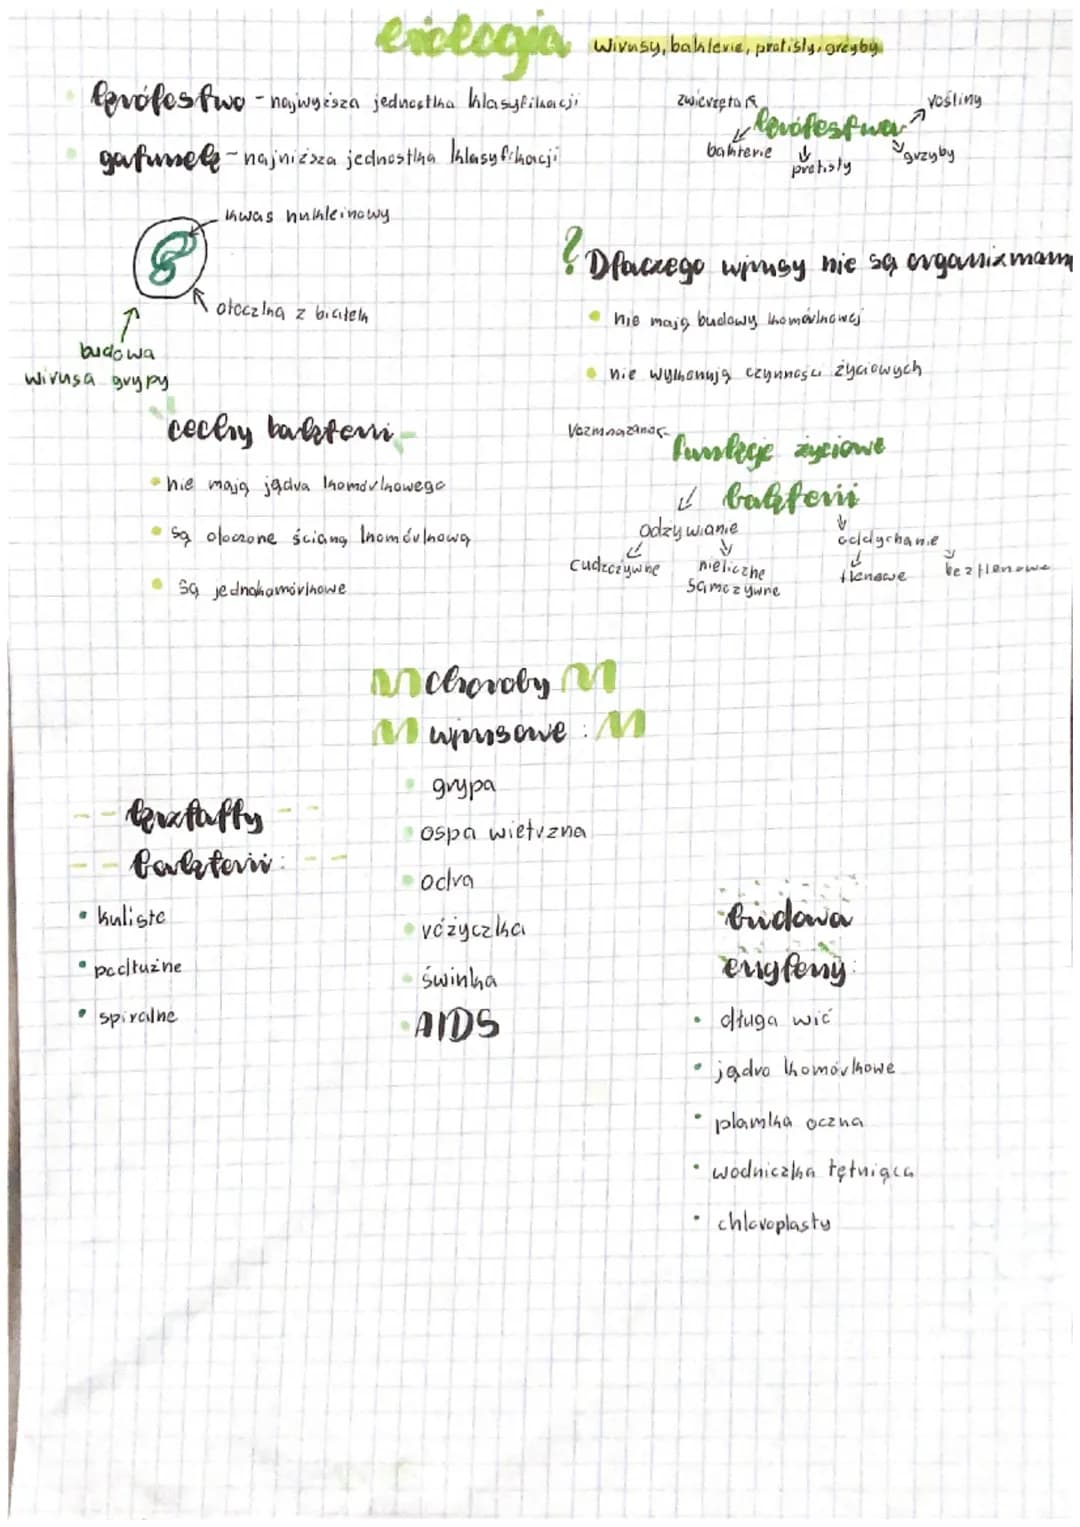 biologia
wirusy, bakterie, protisty, grzyby
królestwo - najwyższa jednostka klasyfikacji
gatunek - najniższa jednostka klasyfikacji
zwierzęta
rośliny
królestwa
bakterie
protisty
grzyby
kwas nukleinowy
otoczka z białek
budowa
wirusa grypy
? Dlaczego wirusy nie są organizmami
nie mają budowy komórkowej
nie wykonują czynności życiowych
cechy bakterii
nie mają jądra komórkowego
są otoczone ścianą komórkową
są jednokomórkowe
funkcje życiowe
bakterii
odżywianie
oddychanie
cudzożywne
nieliczne
samożywne
tlenowe
beztlenowe
choroby
wirusowe:
grypa
ospa wietrzna
odra
różyczka
świnka
AIDS
kształty
bakterii:
kuliste
podłużne
spiralne
budowa
eugleny:
długa wić
jądro komórkowe
plamka oczna
wodniczka tętniąca
chloroplasty